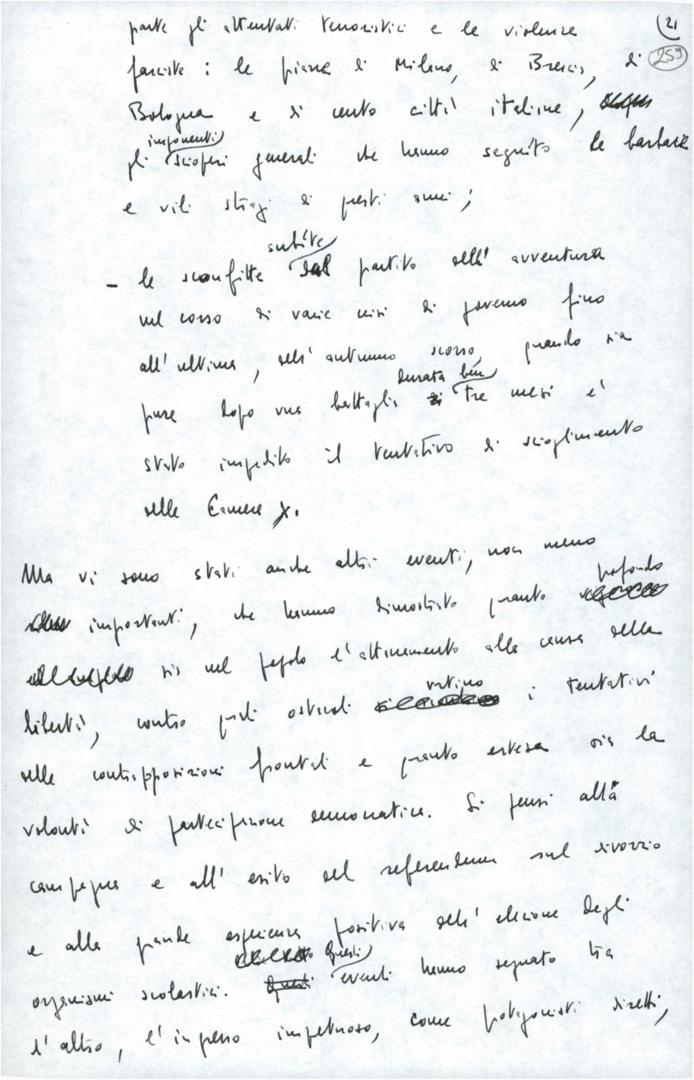 21
259
parte gli attentati terroristici e le violenze
fasciste: le piazze di Milano, di Brescia, di
Bologna e di cento città italiane,
imponenti
gli scioperi generali che hanno seguito le barbare
e vili stragi di questi anni;
subite
- le sconfitte dal partito dell'avventura
nel corso di varie crisi di governo fino
all'ultima, dell'autunno scorso, quando sia
durata ben
pure dopo una battaglia di tre mesi è
stato impedito il tentativo di scioglimento
delle Camere.
Ma vi sono stati anche altri eventi, non meno
profondo
importanti, che hanno dimostrato quanto
sia nel popolo l'attaccamento alla causa della
vetino
libertà, contro quali ostacoli i tentativi
delle contrapposizioni frontali e quanto estesa sia la
volontà di partecipazione democratica. Si pensi alla
campagna e all'esito del referendum sul divorzio
e alla grande esperienza positiva dell'elezione degli
Questi
organismi scolastici. Questi eventi hanno segnato tra
l'altro, l'ingresso impetuoso, come protagonisti diretti,